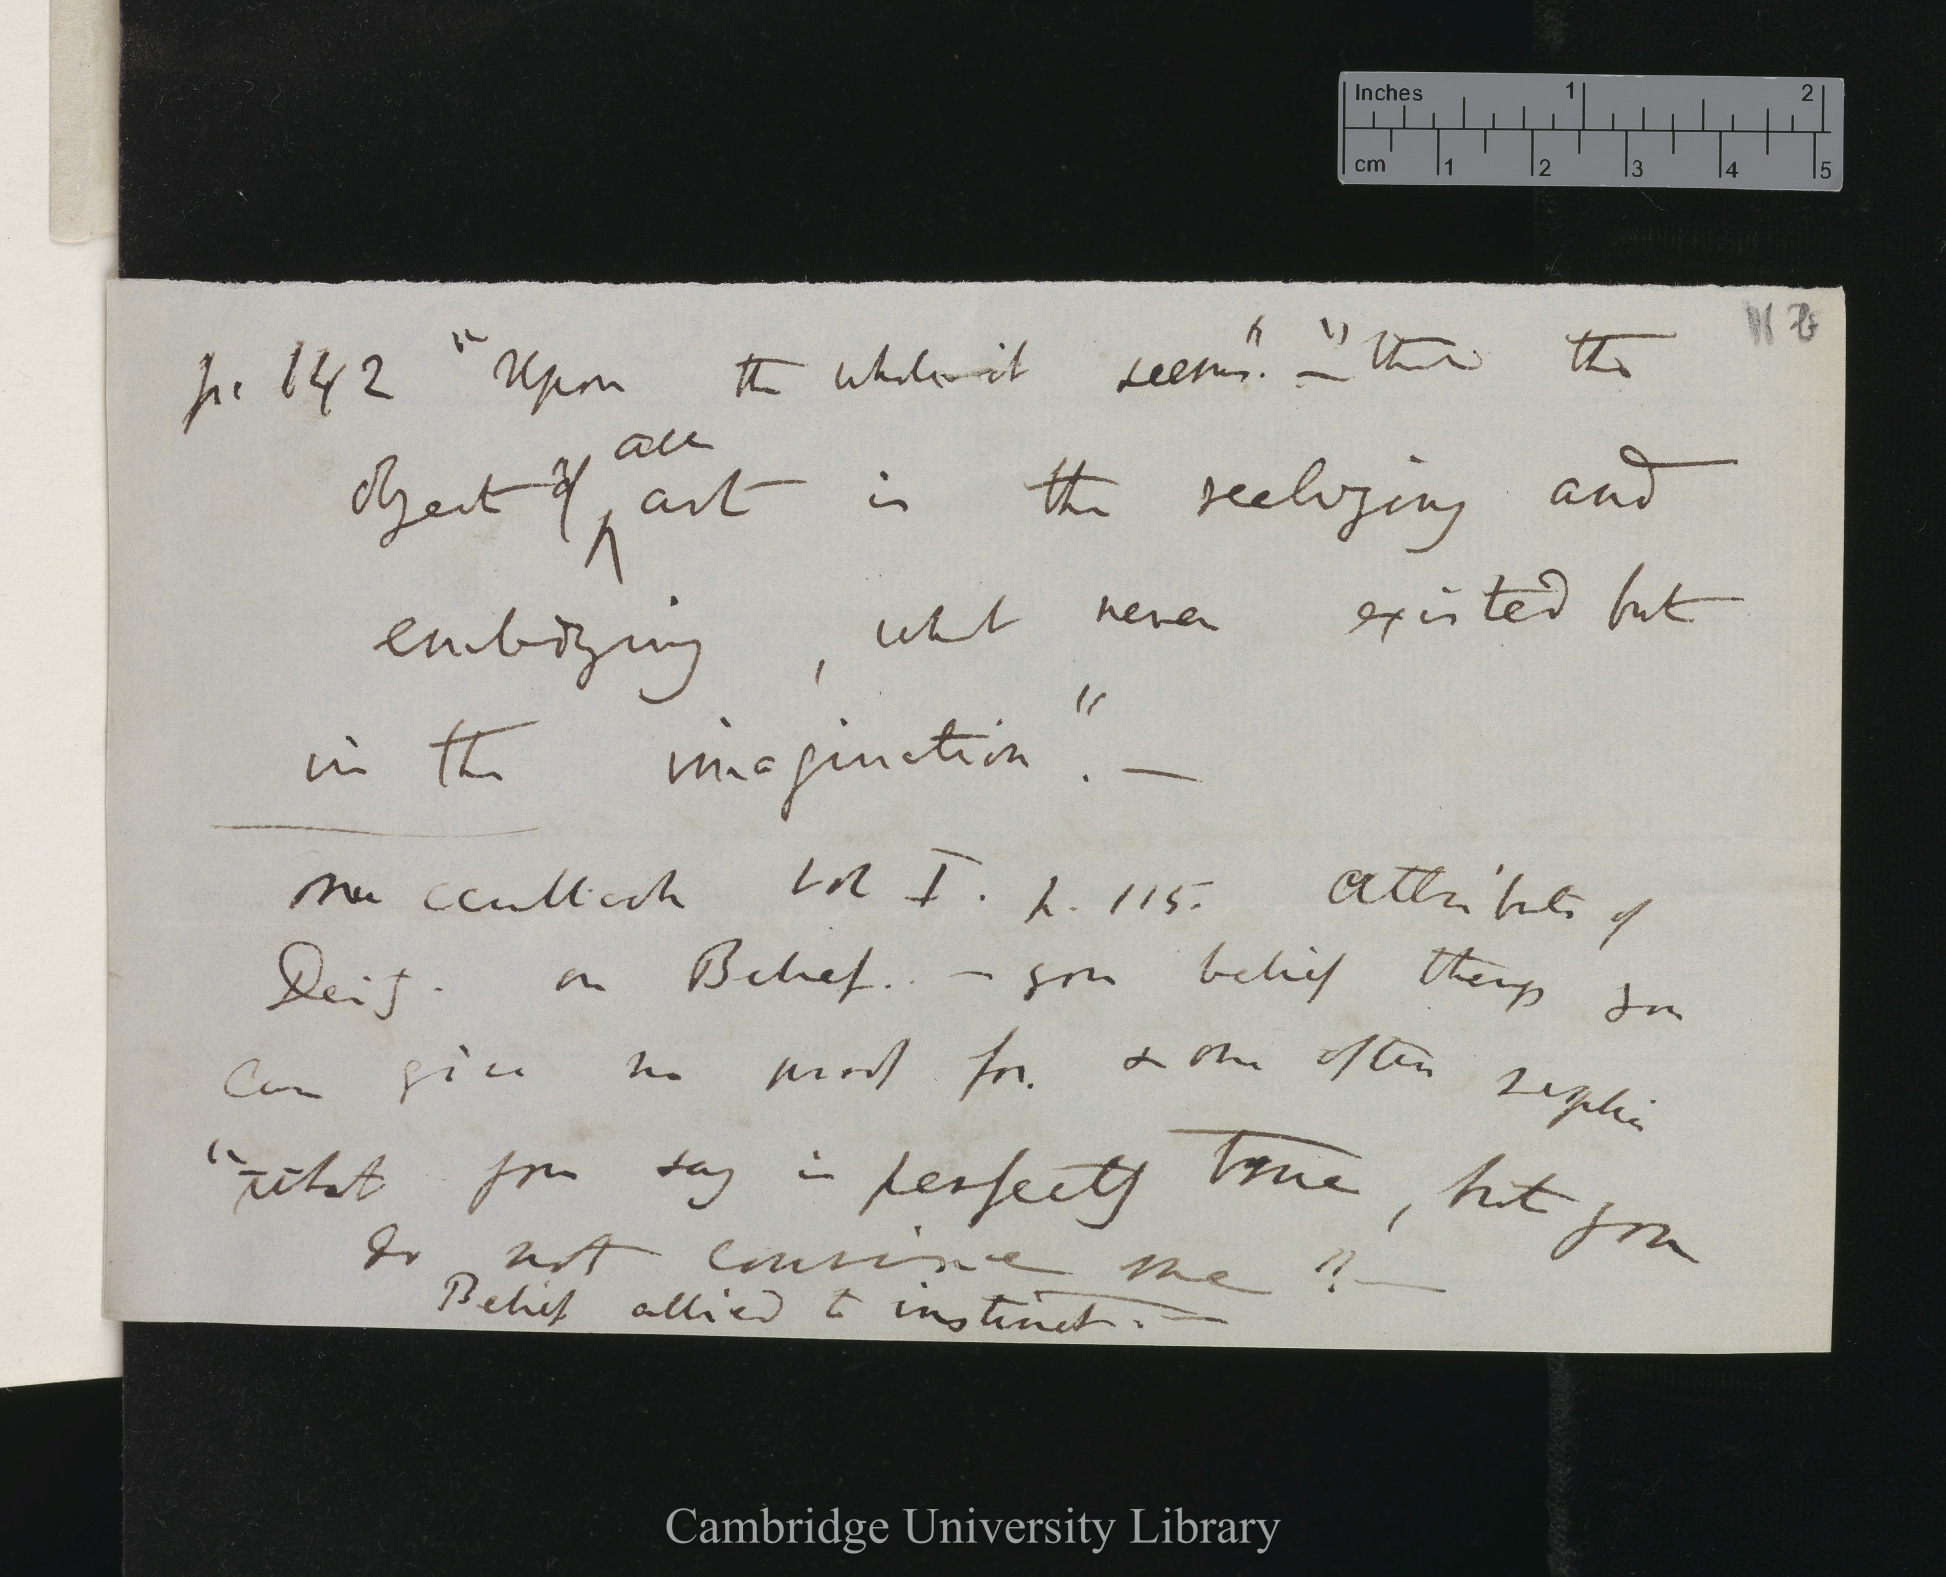 Inches 1 2
cm 1 2 3 4 5
p. 142 "Upon the whole it seems". — "that the
object of all art is the realizing and
embodying, what never existed but
in the imagination". —
Macculloch Vol I. p. 115. Attributes of
Deity. on Belief.. — you belief things you
can give no proof for. & one often replies
"what you say is perfectly true, but you
do not convince me". —
Belief allied to instinct. —
Cambridge University Library